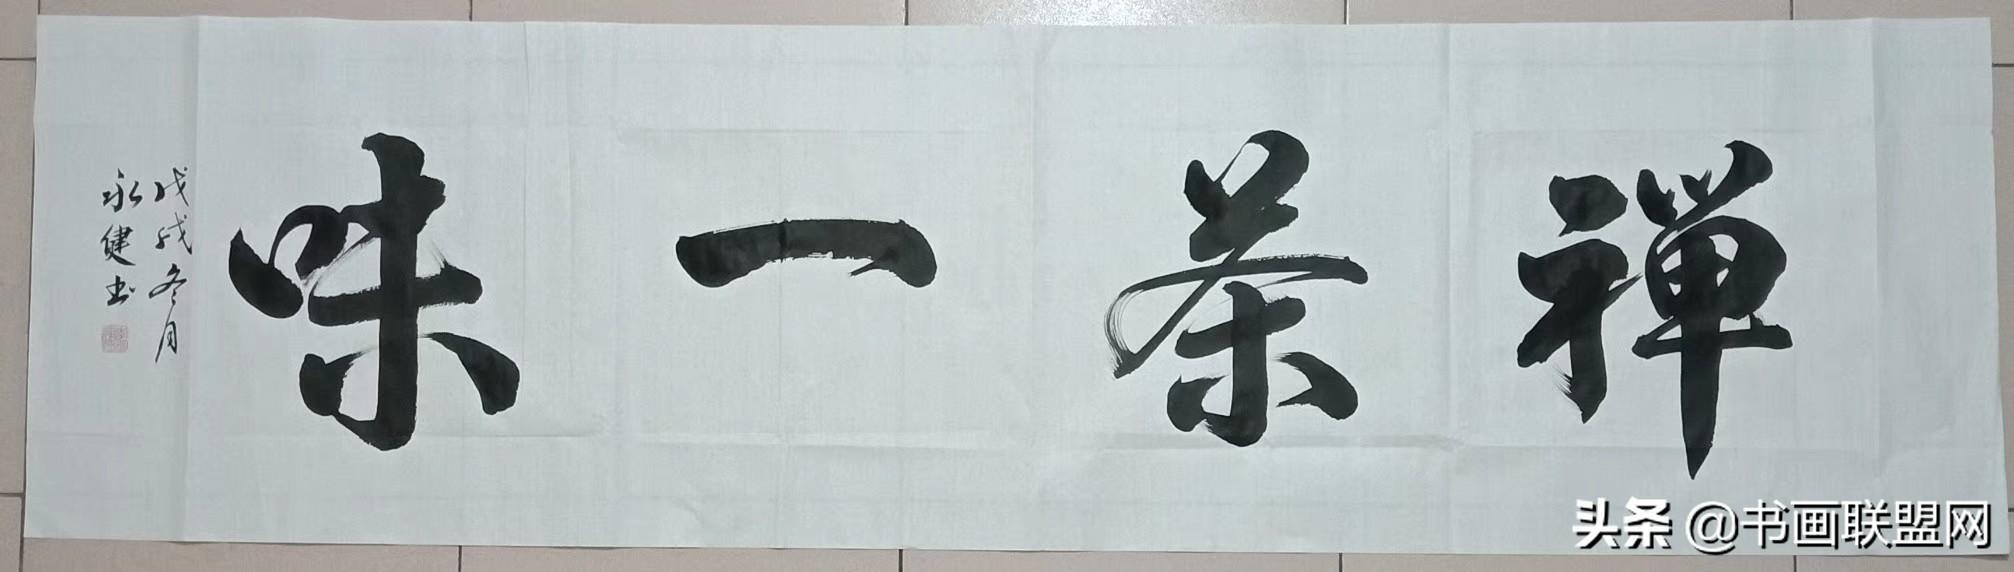 禅茶一味
戊戌冬月
永健书
头条 @书画联盟网